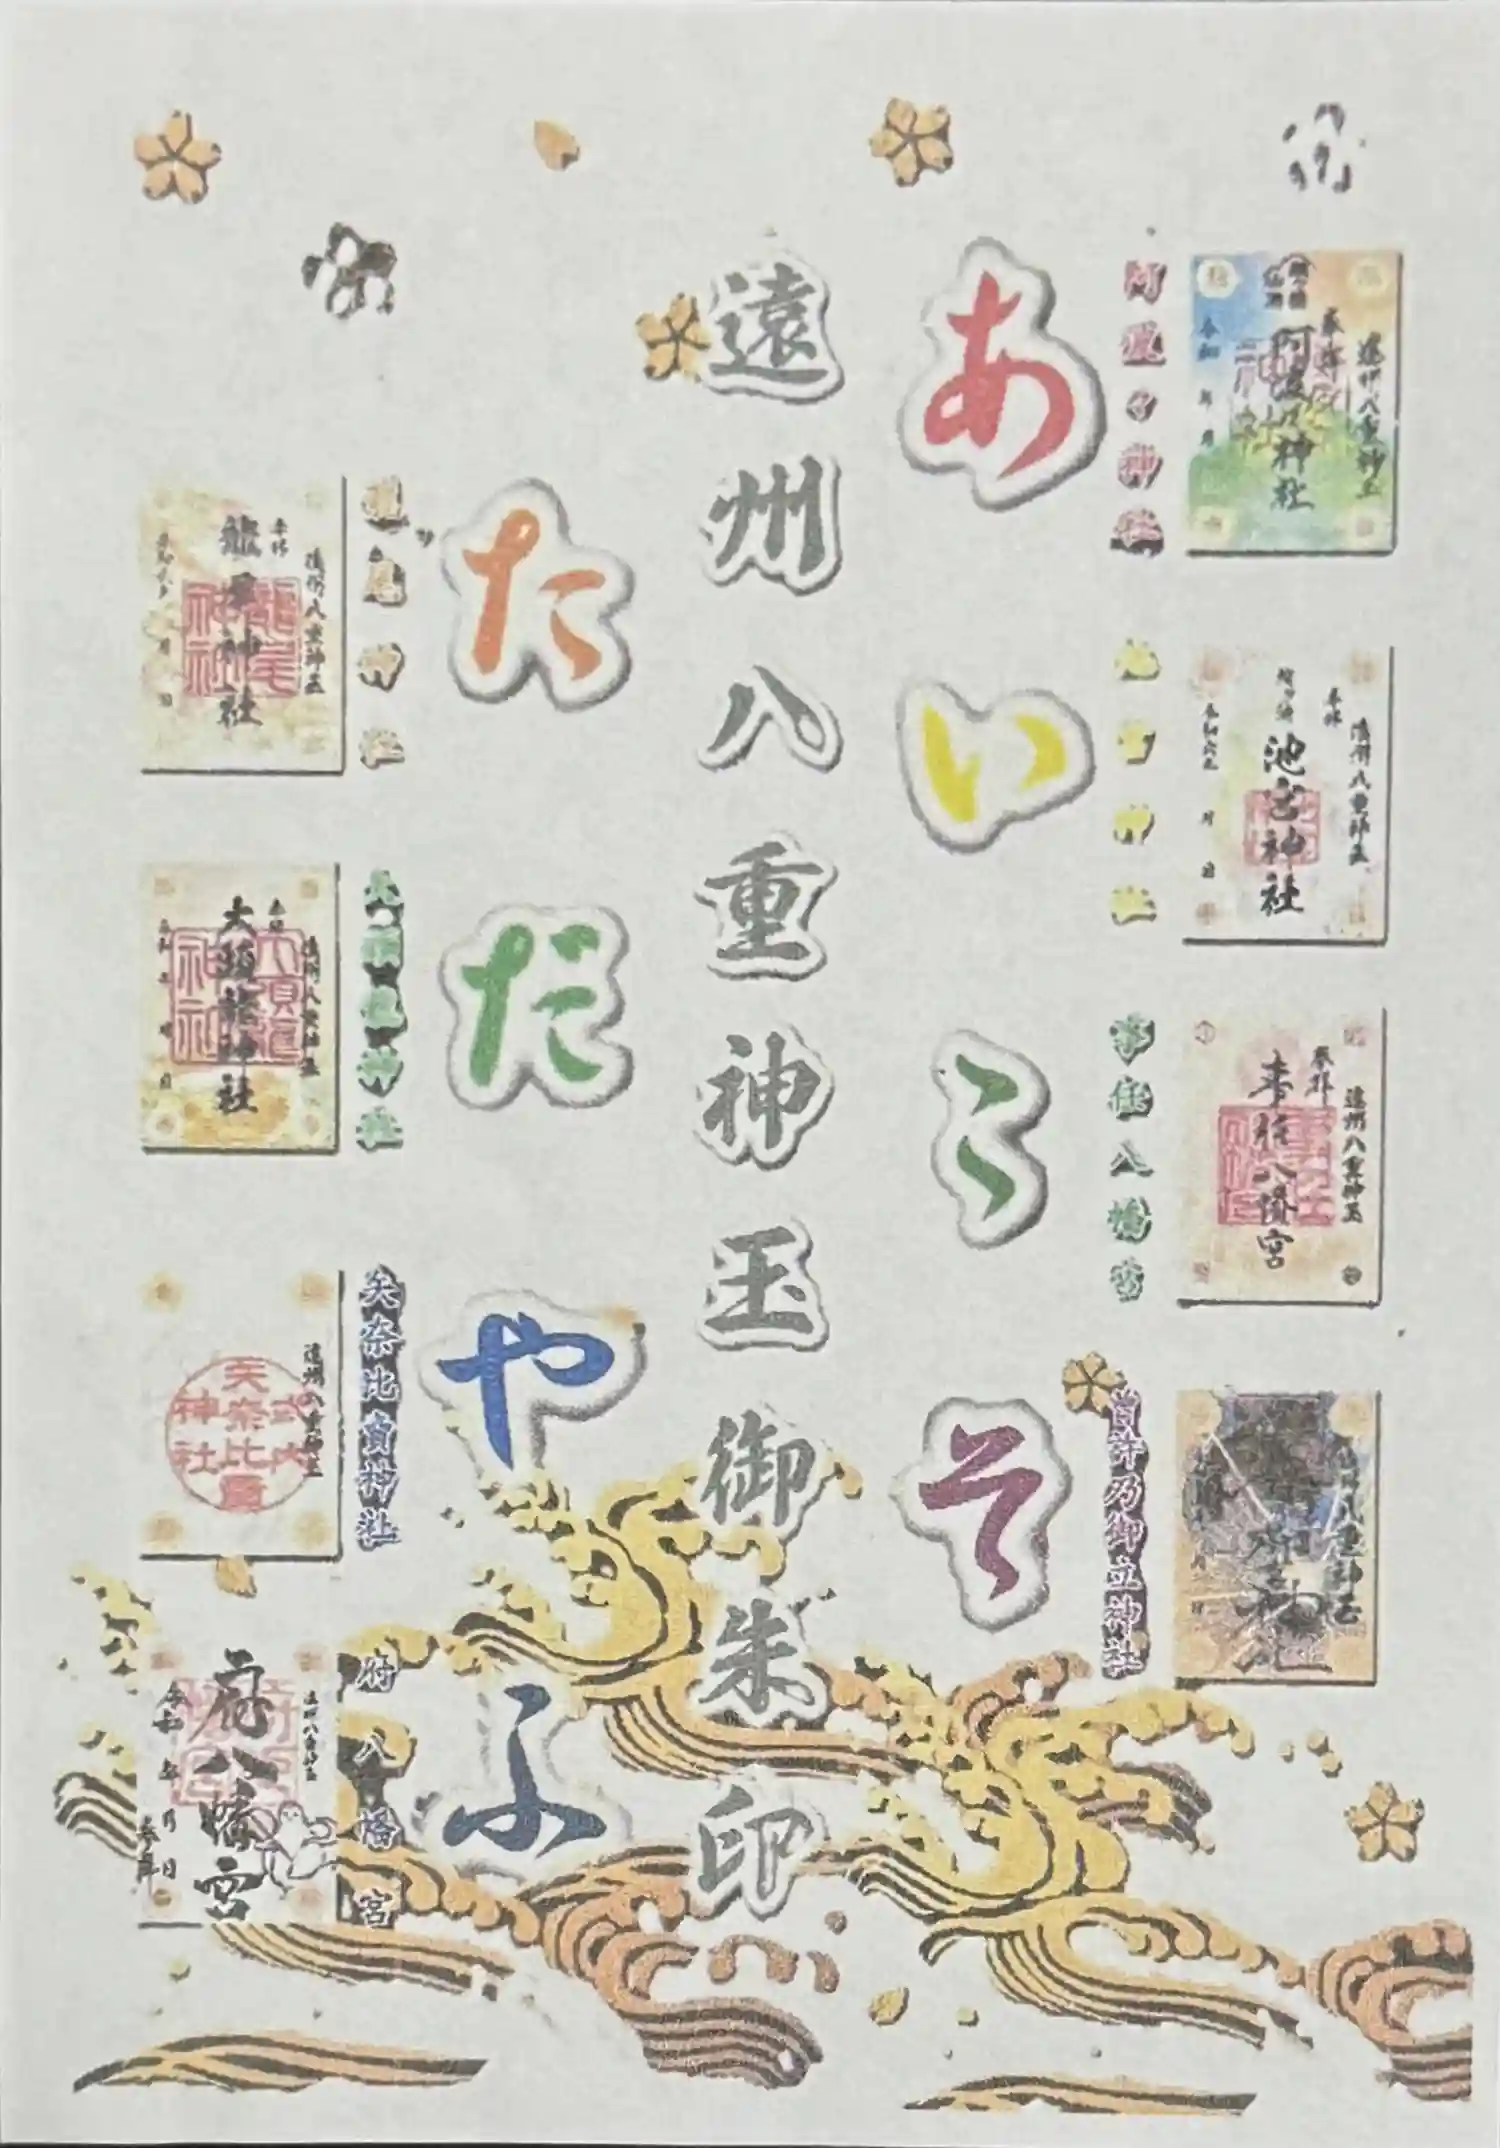 阿波々神社
あ
池宮神社
い
事任八幡宮
う
曽許乃御立神社
そ
遠州八重神玉御朱印
た
龍尾神社
だ
大頭龍神社
や
矢奈比賣神社
ふ
府八幡宮
遠州八重神玉
奉拝
阿波々神社
令和 年 月
遠州八重神玉
奉拝
池宮神社
月 日
遠州八重神玉
奉拝
事任八幡宮
遠州八重神玉
遠州八重神玉
奉拝
龍尾神社
月 日
遠州八重神玉
奉拝
大頭龍神社
月 日
遠州八重神玉
式内
矢奈比賣
神社
遠州八重神玉
府八幡宮
令和 年 月 日
奉拝